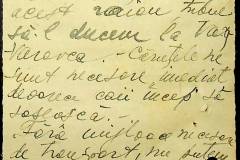 acest raion trebue
să-l ducem la Vas
Varovca. – Căruțele ne
sunt necesare, imediat
deoarece caii încep să
sosească. –
Fără mijloace necesare
de transport, nu putem